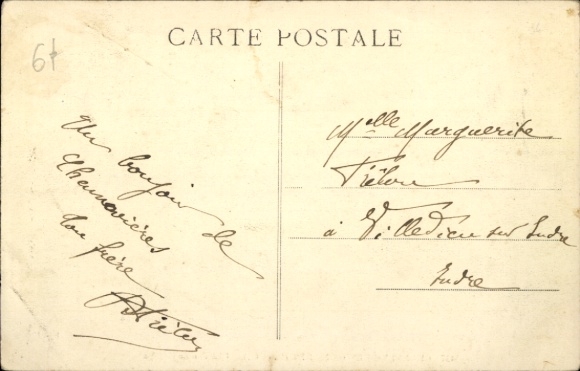 CARTE POSTALE
6f
Un bonjour de
Chennevières
ton frère
Melle Marguerite
à Villedieu sur Indre
Indre